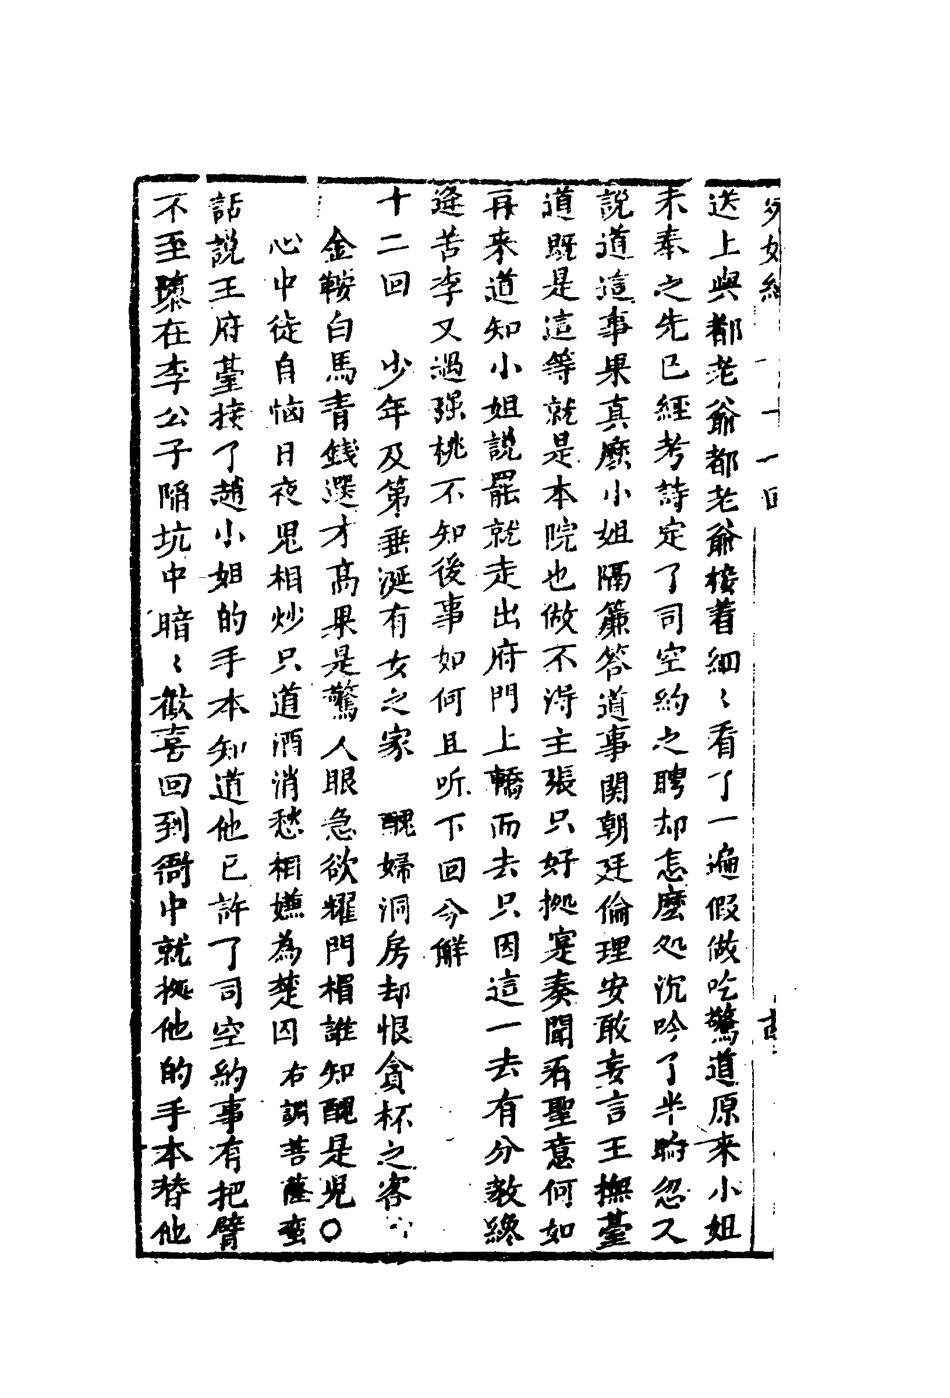 十一回
送上與都老爺都老爺接着細〻看了一遍假做吃驚道原来小姐
未奉之先已經考詩定了司空約之聘却怎麽処沉吟了半晌忽又
説道這事果真麽小姐隔簾答道事関朝廷倫理安敢妄言王撫臺
道既是這等就是本院也做不得主張只好拠寔奏聞看聖意何如
再来道知小姐説罷就走出府門上轎而去只因這一去有分教終
逢苦李又遇强桃不知後事如何且听下回分解
十二回　少年及第垂涎有女之家　醜婦洞房却恨貪杯之客
金鞍白馬青錢選才高果是驚人眼急欲耀門楣誰知醜是児〇
心中徒自惱日夜鬼相炒只道酒消愁相嫌為楚囚 右調菩薩蛮
話説王府臺接了趙小姐的手本知道他已許了司空約事有把臂
不至墮在李公子陷坑中暗〻歡喜回到衙中就拠他的手本替他